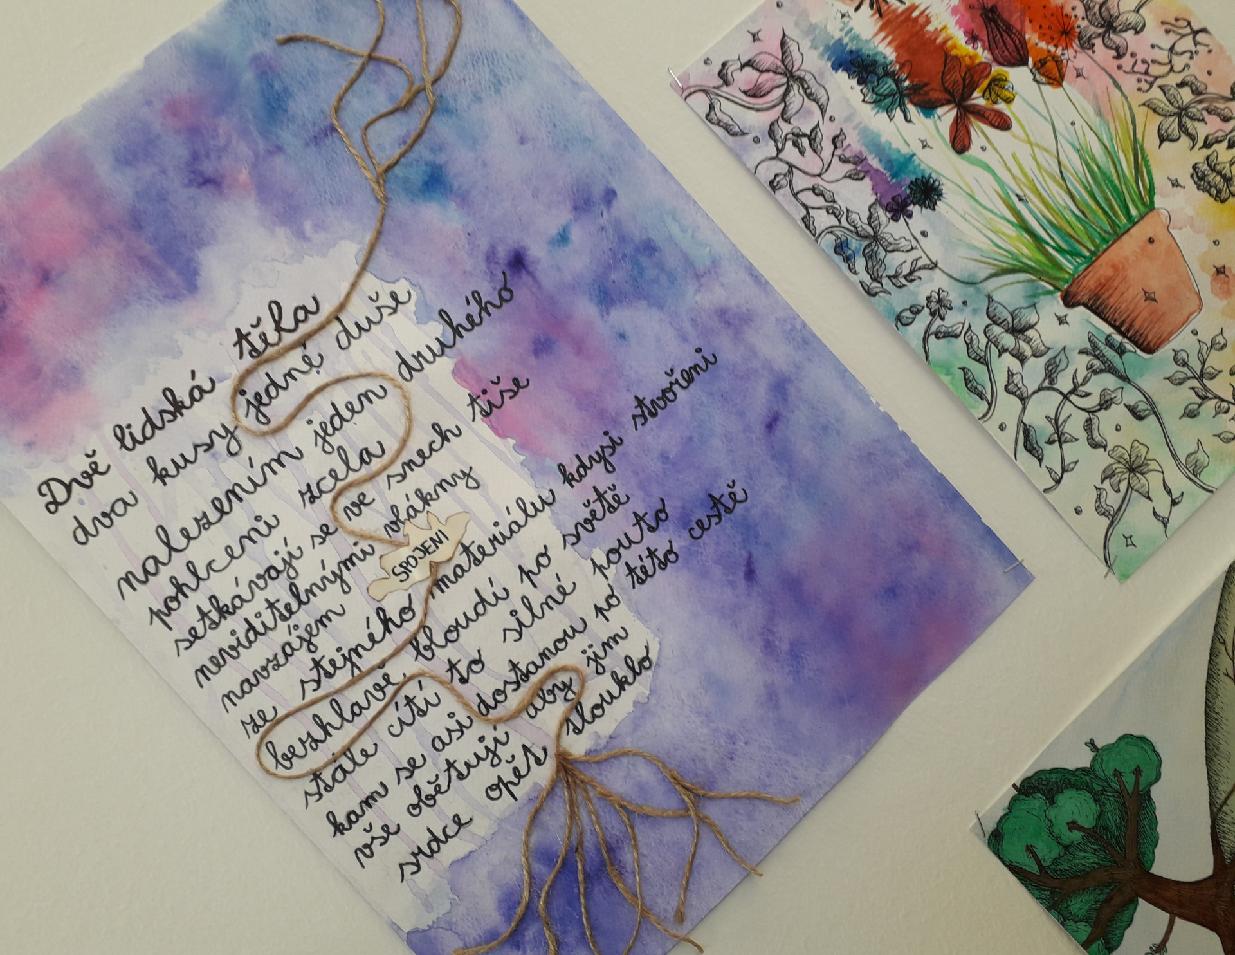 Dvě lidská těla
dva kusy jedné duše
nalezením jeden druhého
pohlceni zcela
setkávají se ve snech tiše
neviditelnými vlákny
navzájem
SPOJENI
ze stejného materiálu kdysi stvořeni
bezhlavě bloudí po světě
stále cítí to silné pouto
kam se asi dostanou po této cestě
vše obětují aby jim
srdce opět tlouklo